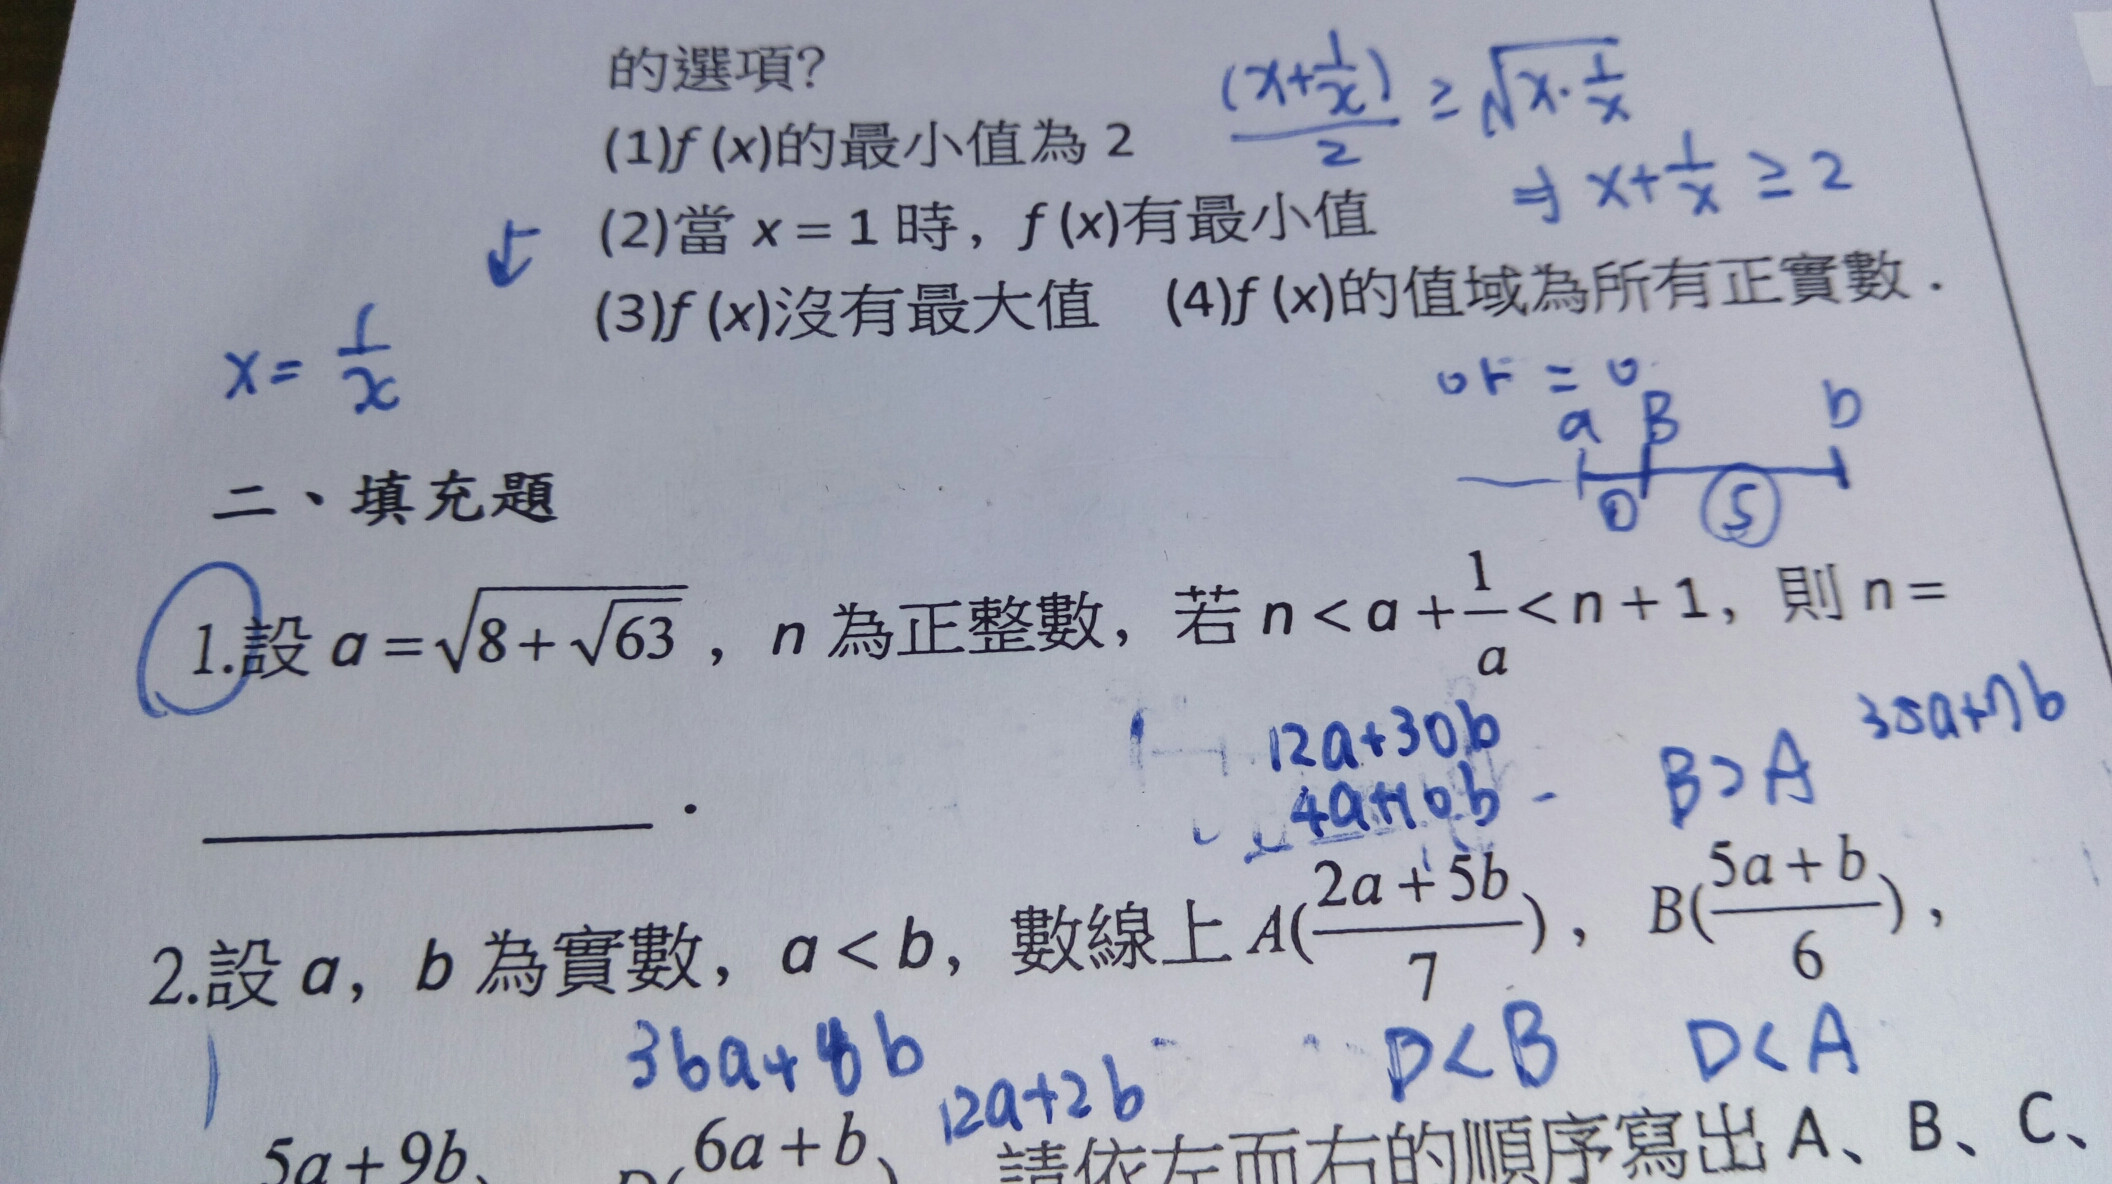 的選項?
(1)f (x)的最小值為 2
(x+1/x)/2 ≥ √(x·1/x)
⇒ x+1/x ≥ 2
(2)當 x = 1 時，f (x)有最小值
(3)f (x)沒有最大值 (4)f (x)的值域為所有正實數．
x = 1/x
a B b
① ⑤
二、填充題
1.設 a = √(8+√63) ，n 為正整數，若 n < a + 1/a < n + 1，則 n =
．
12a+30b
35a+7b
4a+10b
B>A
2.設 a，b 為實數，a < b，數線上 A((2a+5b)/7)，B((5a+b)/6)，
36a+ b
12a+2b
D<B
D<A
5a+9b
6a+b
請依左而右的順序寫出 A、B、C、